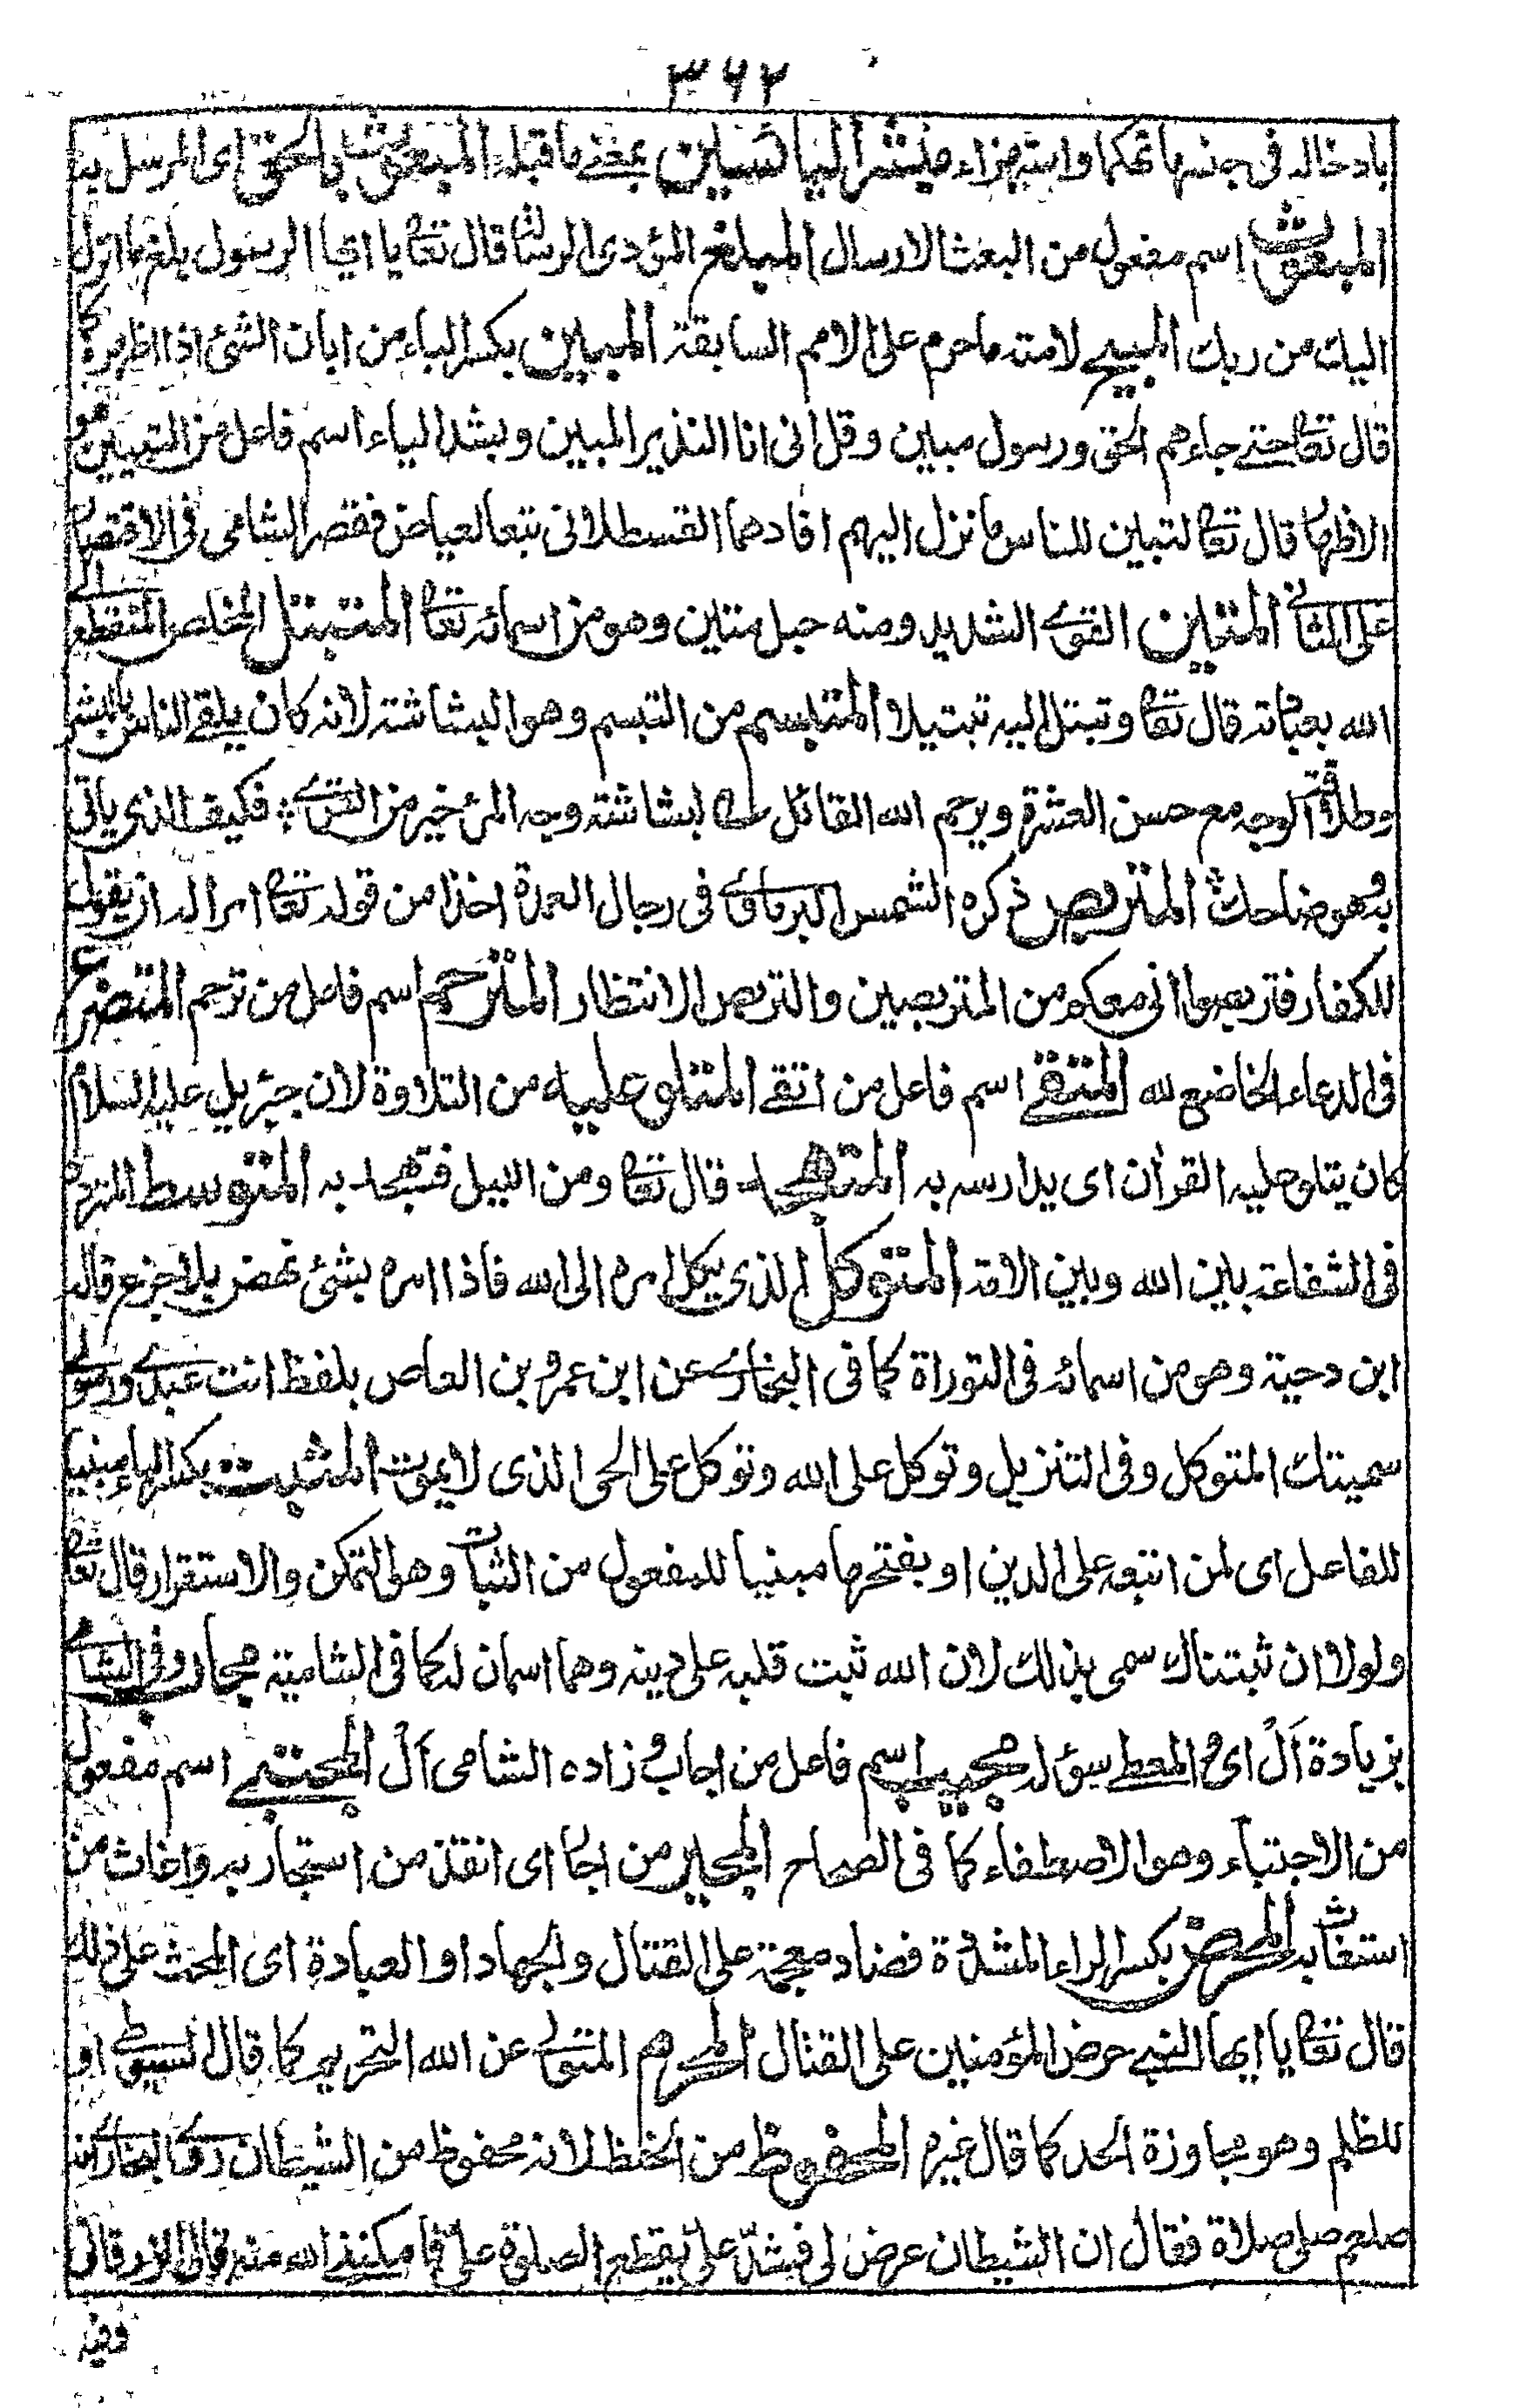 ٣٦٢
بادخاله فى جنسها تهكما واستهزاء مبشر اليائسين بمعنى ما قبله المبعوث بالحق اى المرسل به
المبعوث اسم مفعول من البعث الارسال المبلغ المؤدى الرسالة قال تعا يا ايها الرسول بلغ ما انزل
اليك من ربك المبيح لامته ما حرم على الامم السابقة المبين بكسر الباء من ابان الشئ اذا اظهره كما
قال تعا حتے جاءهم الحق ورسول مبين وقل انى انا النذير المبين وبشد الياء اسم فاعل من التبيين وهو
الاظهار قال تعا لتبين للناس ما نزل اليهم افادهما القسطلانى تبعا لعياض فقصر الشامى فى الاقتصار
على الثانى المتين القوى الشديد ومنه حبل متين وهو من اسمائه تعا المتبتل المخلص المنقطع الى
الله بعبادته قال تعا وتبتل اليه تبتيلا المتبسم من التبسم وهو البشاشة لانه كان يلقے الناس بالبشر
وطلاقة الوجه مع حسن العشرة ويرحم الله القائل بشاشة وجه المرء خير من القرے فكيف الذى ياتى
به وهو ضاحك المتربص ذكره الشمس البرماوے فى رجال العمدة اخذا من قوله تعا امرا له ان يقول
للكفار فتربصوا انى معكم من المتربصين والتربص الانتظار المترحم اسم فاعل من ترحم المتضرع
فى الدعاء الخاضع لله المتقے اسم فاعل من اتقے المتلو عليه من التلاوة لان جبريل عليه السلام
كان يتلو عليه القرأن اى يدارسه به المتهجد قال تعا ومن اليل فتهجد به المتوسط المتردد
فى الشفاعة بين الله وبين الامة المتوكل الذى يكل امره الى الله فاذا امره بشئ نهض بلا جزع قاله
ابن دحية وهو من اسمائه فى التوراة كما فى البخارے عن ابن عمرو بن العاص بلفظ انت عبدے ورسولے
سميتك المتوكل وفى التنزيل وتوكل على الله وتوكل على الحى الذى لا يموت المثبت بكسر الباء مبنيا
للفاعل اى لمن اتبعه على الدين او بفتحها مبنيا للمفعول من الثبات وهو التمكن والاستقرار قال تعا
ولولا ان ثبتناك سمى بذلك لان الله ثبت قلبه على دينه وهما اسمان له كما فى الشامية مجاب وفى الشامى
بزيادة أل اى المعطى سؤله مجيب اسم فاعل من اجاب وزاده الشامى أل المجتبے اسم مفعول
من الاجتباء وهو الاصطفاء كما فى الصحاح المجير من اجار اى انقذ من استجار به واغاث من
استغاث به المحرض بكسر الراء المشددة فضاد معجمة على القتال والجهاد او العبادة اى المحث على ذلك
قال تعا يا ايها النبے حرض المؤمنين على القتال المحرم المتولى عن الله التحريم كما قال السيوطے او
للظلم وهو مجاوزة الحد كما قال غيره المحفوظ من الحفظ لانه محفوظ من الشيطان روى البخارے انه
صلعم صلى صلاة فقال ان الشيطان عرض لى فشد علىّ يقطع الصلوة علىّ فامكننے الله منه قال الزرقانى
ففيه